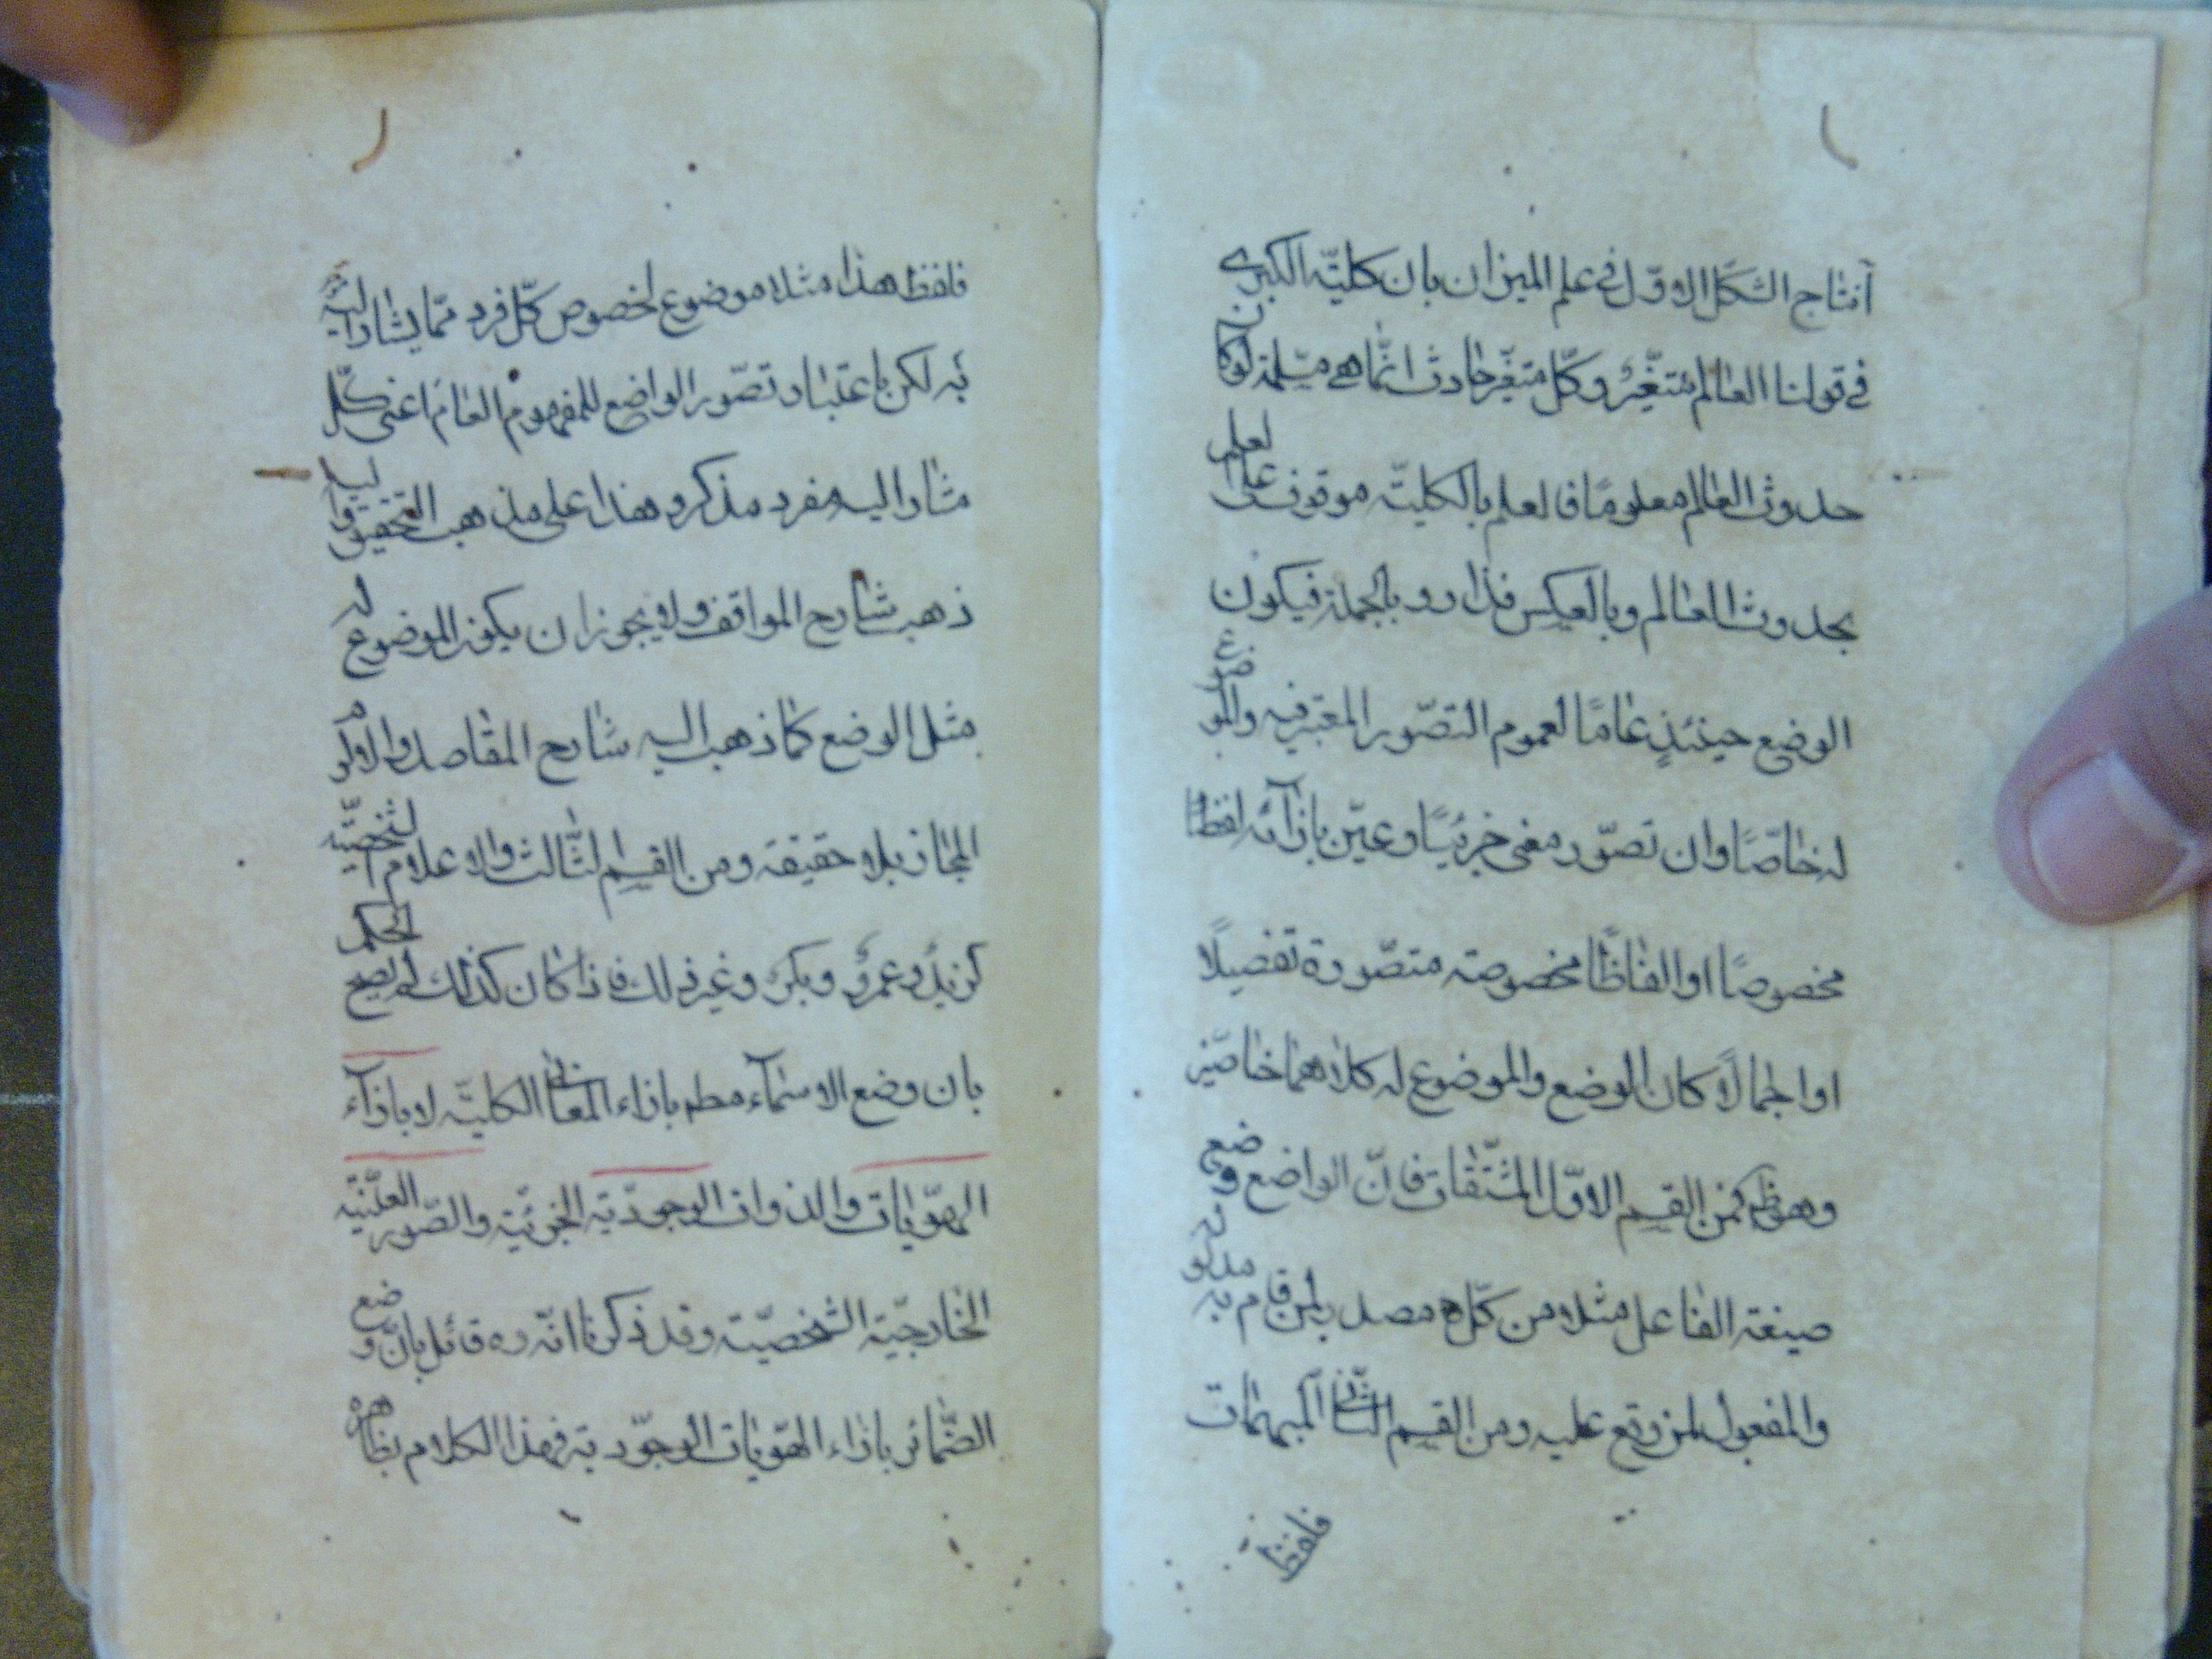 آنتاج الشكل الاوّل فى علم الميزان بان كليّة الكبرى
فى قولنا العالم متغيّر وكلّ متغيّر حادث انّما هى مسلمة لو كان
حدوث العالم معلومًا فالعلم بالكليّة موقوف على العلم
بحدوث العالم وبالعكس فدار وبالجملة فيكون
الوضع حينئذٍ عامًا لعموم التصوّر المعتبر فيه والموضوع
له خاصًا وان تصوّر معنى جزئيًا وعيّن بازآئه لفظا
مخصوصًا او الفاظًا مخصوصة متصوّرة تفصيلًا
او اجمالًا كان الوضع والموضوع له كلاهما خاصّين
وهو ظ فمن القسم الاوّل المشتقّات فانّ الواضع وضع
صيغة الفاعل مثلا من كلّ مصدر لمن قام به مدلوله
والمفعول لمن وقع عليه ومن القسم الثّانى المبهمات
فلفظ
فلفظ هذا مثلا موضوع لخصوص كلّ فرد ممّا يشار اليه
به لكن باعتبار تصوّر الواضع للمفهوم العام اعنى كلّ
مشار اليه مفرد مذكر وهذا على مذهب التحقيق واليه
ذهب شارح المواقف ولا يجوز ان يكون الموضوع له
مثل الوضع كما ذهب اليه شارح المقاصد والا لزم
المجاز بلا حقيقة ومن القسم الثّالث الاعلام الشخصيّة
كزيدٍ وعمرو وبكر وغير ذلك فاذا كان كذلك لم يصح الحكم
بان وضع الاسمآء مطم بازاء المعانى الكليّة لا بازآء
الهوّيات والذوات الوجوديّة الجزئيّة والصّور العلّنيّة
الخارجيّة الشخصيّة وقد ذكرنا انّه ره قائل بانّ وضع
الضّمائر بازاء الهوّيات الوجوديّة فهذا الكلام بظاهره